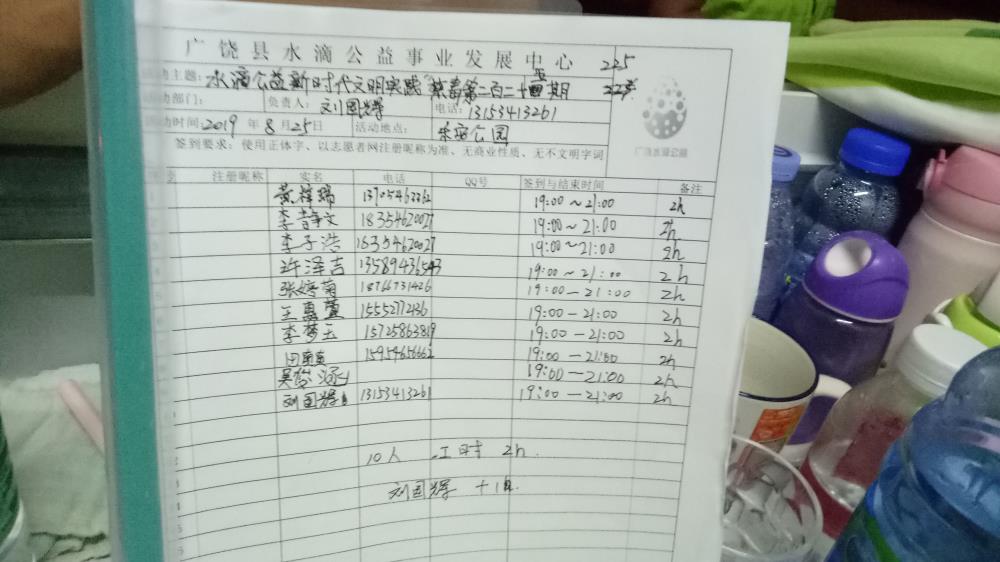 广饶县水滴公益事业发展中心
225
活动主题：水滴公益新时代文明实践 第二百二十五期
活动部门： 负责人：刘国辉 电话：13153413261
活动时间：2019年8月25日 活动地点： 乐安公园
签到要求：使用正体字、以志愿者网注册昵称为准、无商业性质、无不文明字词
广饶水滴公益
注册昵称 实名 电话 QQ号 签到与结束时间 备注
黄祥瑞 13705462262 19:00～21:00 2h
李静文 18354620027 19:00～21:00 2h
李子浩 18354620027 19:00～21:00 2h
许泽吉 13589436543 19:00～21:00 2h
张婷菊 18766731426 19:00—21:00 2h
王惠萱 15552772436 19:00-21:00 2h
李梦玉 15725863819 19:00—21:00 2h
田 15954656662 19:00—21:00 2h
吴 涵 19:00—21:00 2h
刘国辉 13153413261 19:00—21:00 2h
10人 工时 2h
刘国辉 +1h